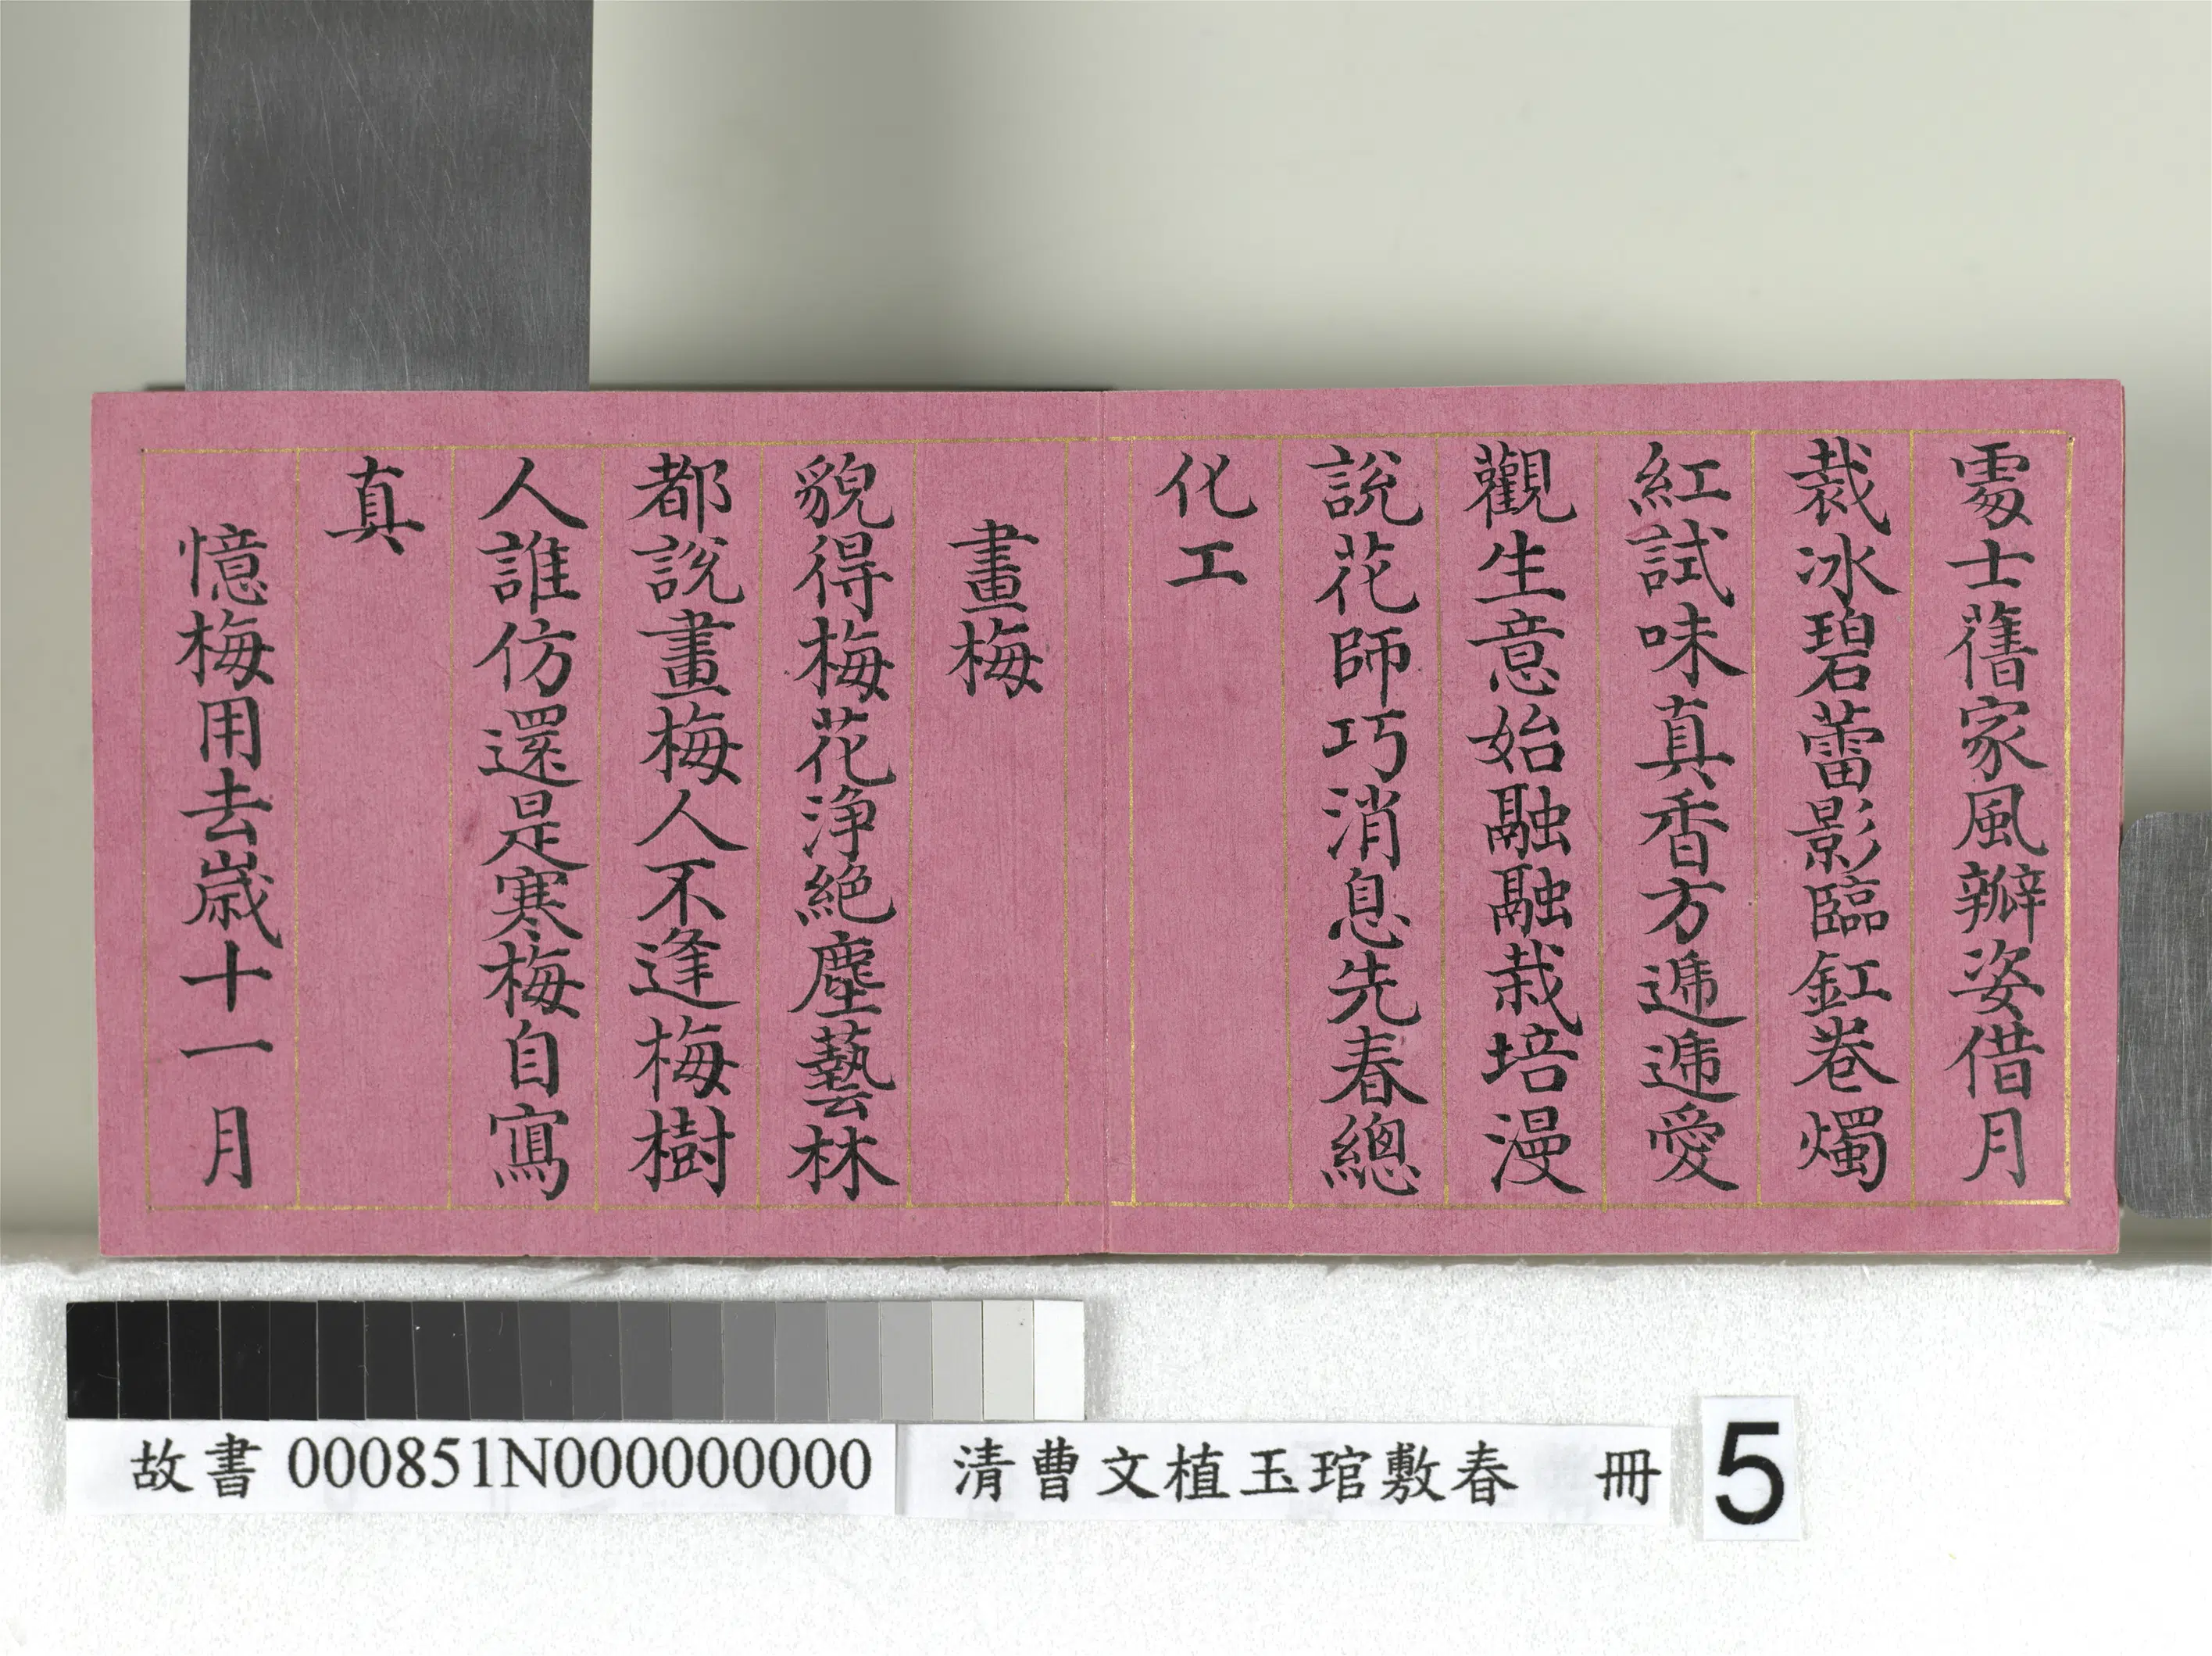 處士舊家風瓣姿借月
裁冰碧蕾影臨缸卷燭
紅試味真香方遞遞愛
觀生意始融融栽培漫
說花師巧消息先春總
化工
畫梅
貌得梅花淨絕塵藝林
都說畫梅人不逢梅樹
人誰仿還是寒梅自寫
真
憶梅用去歲十一月
故書 000851N000000000
清曹文植玉琯敷春 冊
5